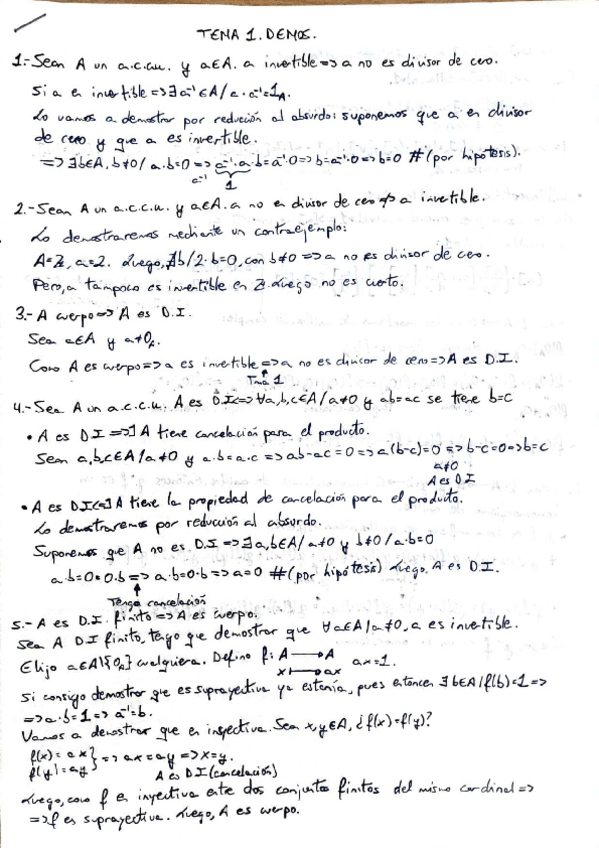 TEMA 1. DEMOS.
1.- Sean A un a.c.c.u. y a∈A. a invertible => a no es divisor de cero.
Si a es invertible => ∃a⁻¹∈A / a·a⁻¹=1_A.
Lo vamos a demostrar por redución al absurdo: suponemos que a es divisor
de cero y que a es invertible.
=> ∃b∈A, b≠0 / a·b=0 => a⁻¹·a·b=a⁻¹·0 => b=a⁻¹·0 => b=0 # (por hipótesis).
a⁻¹ 1
2.- Sean A un a.c.c.u. y a∈A. a no es divisor de cero ≠> a invertible.
Lo demostraremos mediante un contraejemplo:
A=ℤ, a=2. Luego, ∄b / 2·b=0, con b≠0 => a no es divisor de cero.
Pero, a tampoco es invertible en ℤ. Luego no es cierto.
3.- A cuerpo => A es D.I.
Sea a∈A y a≠0_A.
Como A es cuerpo => a es invertible => a no es divisor de cero => A es D.I.
↑ Tma 1
4.- Sea A un a.c.c.u. A es D.I <=> ∀a,b,c∈A / a≠0 y ab=ac se tiene b=c
• A es D.I => A tiene cancelación para el producto.
Sean a,b,c∈A / a≠0 y a·b=a·c => ab-ac=0 => a(b-c)=0 => b-c=0 => b=c
a≠0
A es D.I
• A es D.I <= A tiene la propiedad de cancelación para el producto.
Lo demostraremos por redución al absurdo.
Suponemos que A no es D.I => ∃a,b∈A / a≠0 y b≠0 / a·b=0
a·b=0=0·b => a·b=0·b => a=0 # (por hipótesis) Luego, A es D.I.
↑ Tengo cancelación
5.- A es D.I. finito => A es cuerpo.
Sea A D.I finito, tengo que demostrar que ∀a∈A / a≠0, a es invertible.
Elijo a∈A\{0_A} cualquiera. Defino f: A → A ax=1.
x → ax
Si consigo demostrar que es suprayectiva ya estaría, pues entonces ∃b∈A / f(b)=1 =>
=> a·b=1 => a⁻¹=b.
Vamos a demostrar que es inyectiva. Sea x,y∈A, ¿f(x)=f(y)?
f(x)=ax
f(y)=ay } => ax=ay => x=y.
A es D.I (cancelación)
Luego, como f es inyectiva entre dos conjuntos finitos del mismo cardinal =>
=> f es suprayectiva. Luego, A es cuerpo.